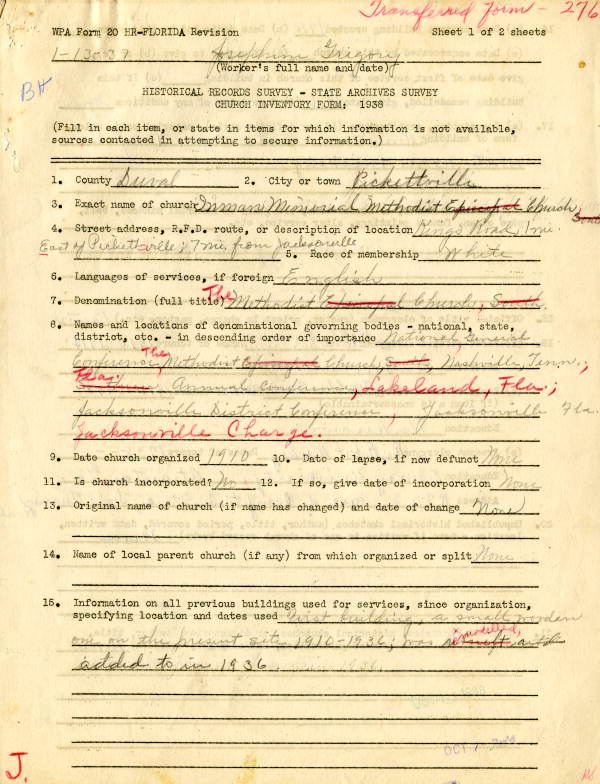 Transferred Form - 276
WPA Form 20 HR-FLORIDA Revision Sheet 1 of 2 sheets
1-13-39 Josephine Gregory
(Worker's full name and date)
BH
HISTORICAL RECORDS SURVEY - STATE ARCHIVES SURVEY
CHURCH INVENTORY FORM: 1938
(Fill in each item, or state in items for which information is not available,
sources contacted in attempting to secure information.)
1. County Duval 2. City or town Pickettville
3. Exact name of church Inman Memorial Methodist Episcopal Church, South
4. Street address, R.F.D. route, or description of location Kings Road, 1 mi.
East of Pickettville; 7 mi. from Jacksonville
5. Race of membership White
6. Languages of services, if foreign English
7. Denomination (full title) The Methodist Episcopal Church, South
8. Names and locations of denominational governing bodies - national, state,
district, etc. - in descending order of importance National General
Conference, The Methodist Episcopal Church, South, Nashville, Tenn.;
Fla. Annual Conference, Lakeland, Fla.;
Jacksonville District Conference, Jacksonville Fla.
Jacksonville Charge.
9. Date church organized 1910 10. Date of lapse, if now defunct None
11. Is church incorporated? No 12. If so, give date of incorporation None
13. Original name of church (if name has changed) and date of change None
14. Name of local parent church (if any) from which organized or split None
15. Information on all previous buildings used for services, since organization,
specifying location and dates used First building, a small wooden
one on the present site 1910-1936; was remodelled,
added to in 1936.
OCT 7
J.